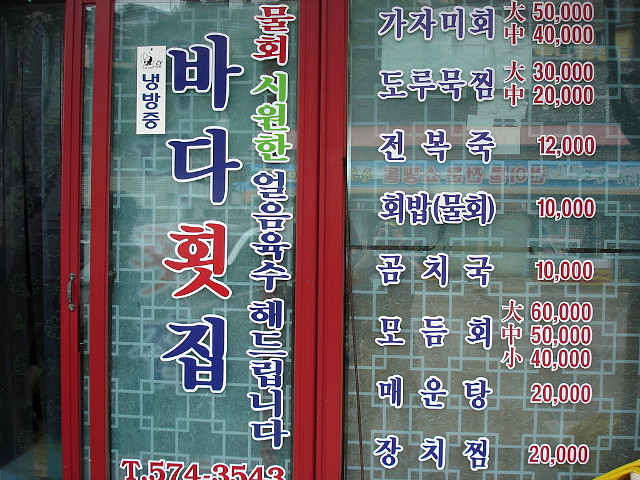 냉방중
바다횟집
물회 시원한 얼음육수 해드립니다
T.574-3543
가자미회 大 50,000
中 40,000
도루묵찜 大 30,000
中 20,000
전복죽 12,000
회밥(물회) 10,000
곰치국 10,000
모듬회 大 60,000
中 50,000
小 40,000
매운탕 20,000
장치찜 20,000